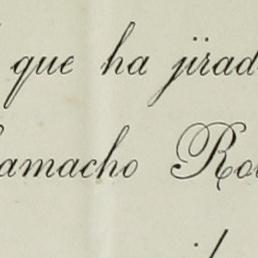 que ha jirad
amacho Ro